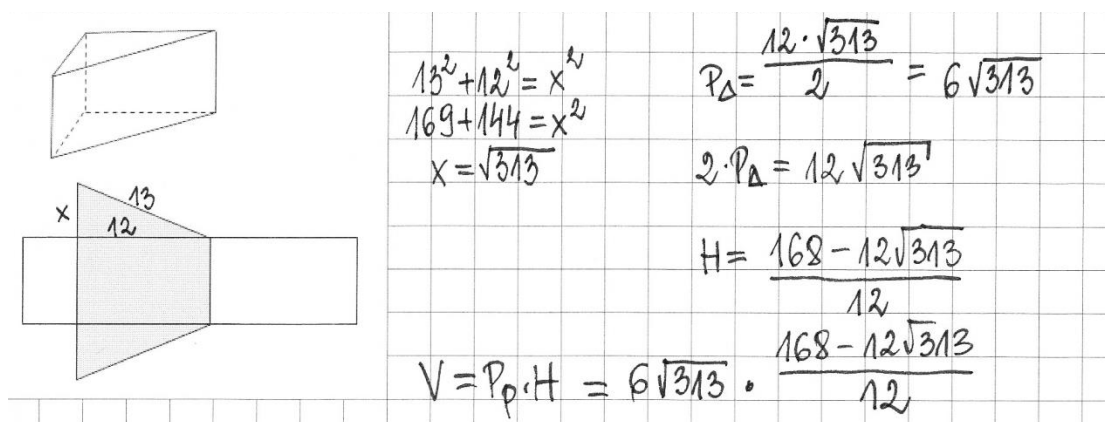 13² + 12² = x²
169 + 144 = x²
x = √313
x
13
12
P△ = 12 · √313 / 2 = 6√313
2 · P△ = 12√313
H = 168 - 12√313 / 12
V = Pp · H = 6√313 · 168 - 12√313 / 12